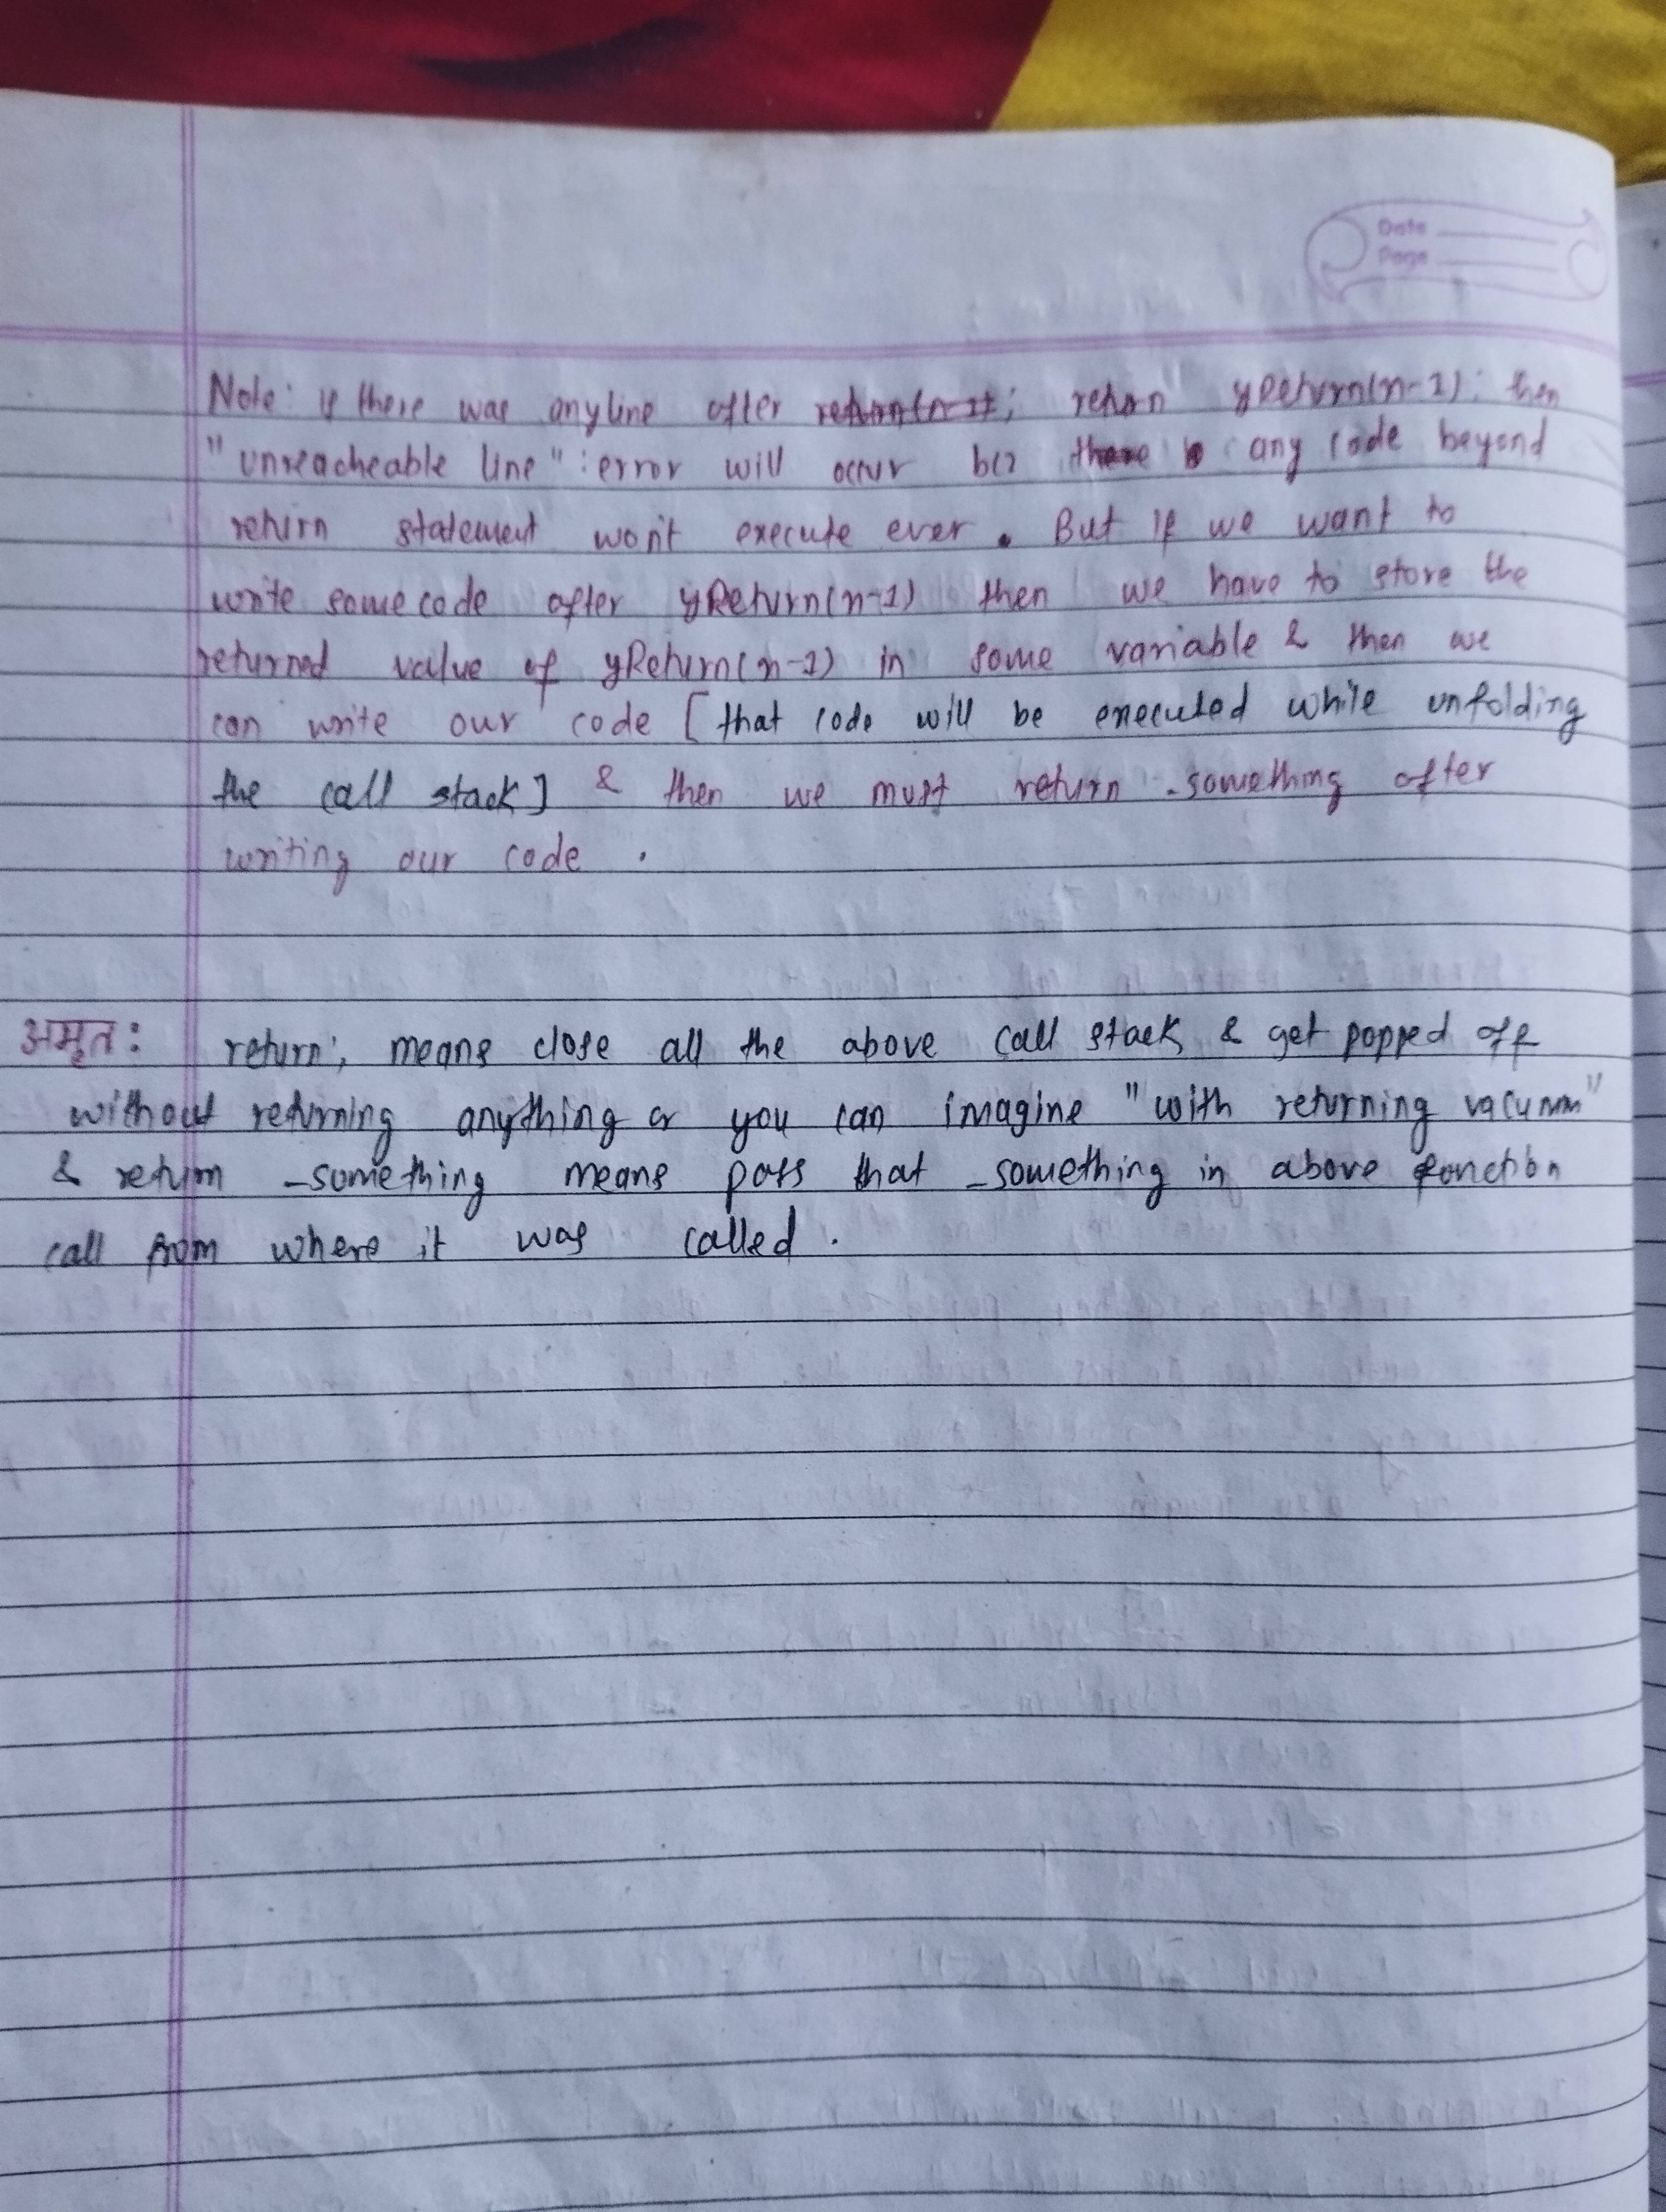 Date
Page
Note: if there was any line after return(n-1); return yReturn(n-1); then
"unreacheable line" : error will occur bcz there is any code beyond
return statement won't execute ever. But if we want to
write some code after yReturn(n-1) then we have to store the
returned value of yReturn(n-1) in some variable & then we
can write our code [that code will be executed while unfolding
the call stack] & then we must return _something after
writing our code.
अमृत: return; means close all the above call stack & get popped off
without returning anything or you can imagine "with returning vacumm"
& return _something means pass that _something in above function
call from where it was called.